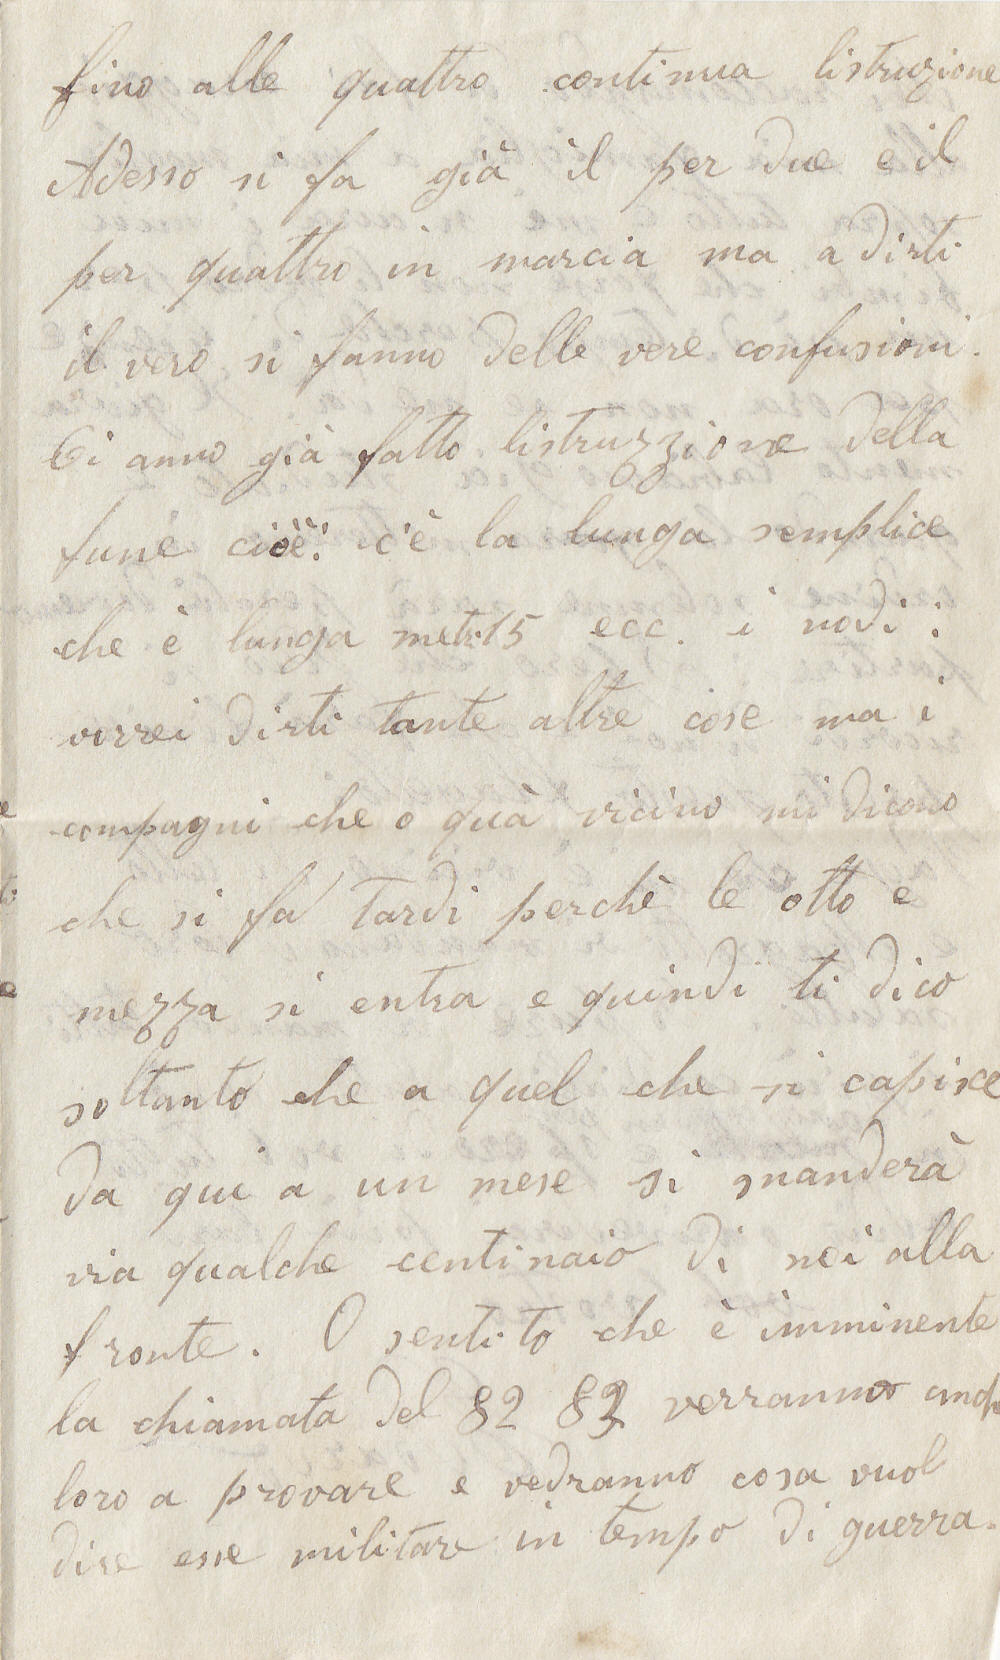 fino alle quattro continua listruzione
Adesso si fa già il per due e il
per quattro in marcia ma a dirti
il vero si fanno delle vere confusioni.
Ci anno già fatto listruzzione della
fune cioè: c'è la lunga semplice
che è lunga metr. 15 ecc. i nodi;
vorrei dirti tante altre cose ma i
compagni che o quà vicino mi dicono
che si fa tardi perchè le otto e
mezza si entra e quindi ti dico
soltanto che a quel che si capisce
da qui a un mese si manderà
via qualche centinaio di noi alla
fronte. O sentito che è imminente
la chiamata del 82 83 verranno anche
loro a provare e vedranno cosa vuol
dire esse militare in tempo di guerra.